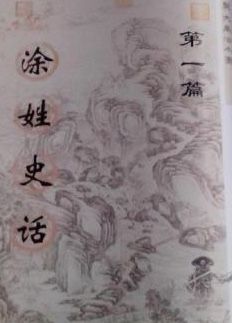 第一篇
涂姓史话